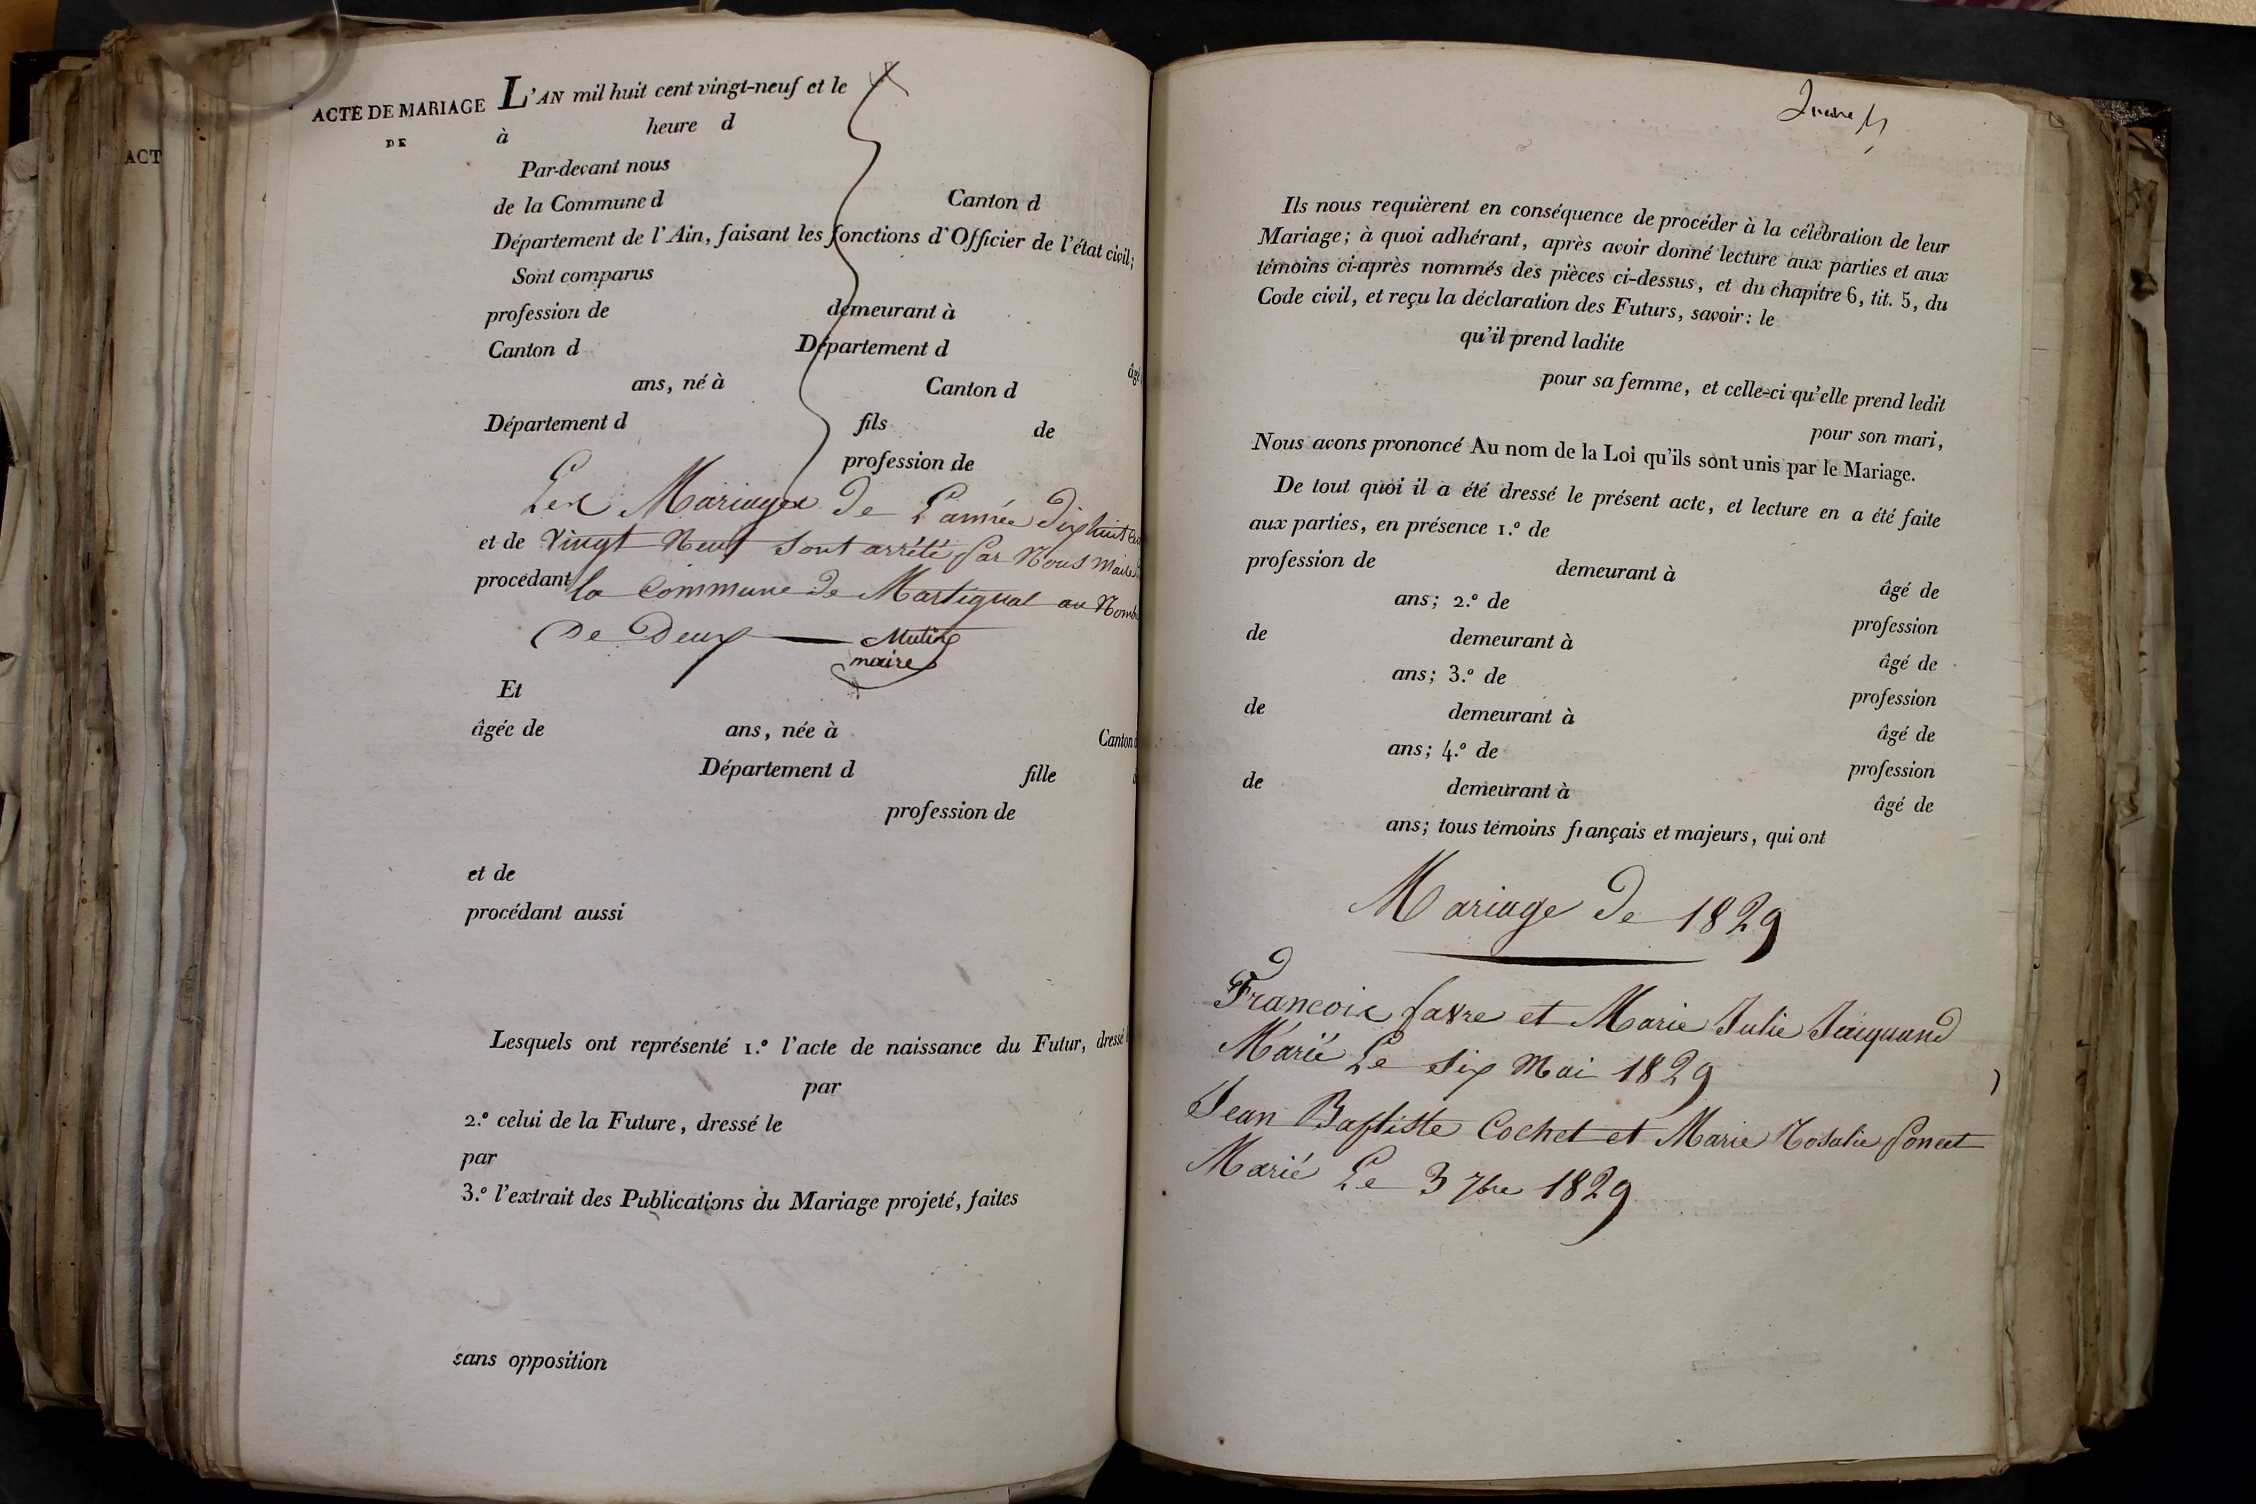 ACT
ACTE DE MARIAGE
DE
L'AN mil huit cent vingt-neuf et le
à heure d
Par-devant nous
de la Commune d Canton d
Département de l'Ain, faisant les fonctions d'Officier de l'état civil;
Sont comparus
profession de demeurant à
Canton d Département d
âgé
ans, né à Canton d
Département d fils de
profession de
Les Mariages De L'année dix huit
et de Vingt Neuf Sont arrêté par Nous Maire
procédant la Commune De Martignat au Nomb
De Deux Mutin
maire
Et
âgée de ans, née à Canton d
Département d fille
profession de
et de
procédant aussi
Lesquels ont représenté 1.º l'acte de naissance du Futur, dressé
par
2.º celui de la Future, dressé le
par
3.º l'extrait des Publications du Mariage projeté, faites
sans opposition
Ils nous requièrent en conséquence de procéder à la célébration de leur
Mariage; à quoi adhérant, après avoir donné lecture aux parties et aux
témoins ci-après nommés des pièces ci-dessus, et du chapitre 6, tit. 5, du
Code civil, et reçu la déclaration des Futurs, savoir: le
qu'il prend ladite
pour sa femme, et celle-ci qu'elle prend ledit
pour son mari,
Nous avons prononcé Au nom de la Loi qu'ils sont unis par le Mariage.
De tout quoi il a été dressé le présent acte, et lecture en a été faite
aux parties, en présence 1.º de
profession de demeurant à âgé de
ans; 2.º de profession
de demeurant à âgé de
ans; 3.º de profession
de demeurant à âgé de
ans; 4.º de profession
de demeurant à âgé de
ans; tous témoins français et majeurs, qui ont
Mariage De 1829
Francois favre et Marie Julie Jaiquand
Marié Le Six Mai 1829
Jean Baptiste Cochet et Marie Rosalie poncet
Marié Le 3 7bre 1829